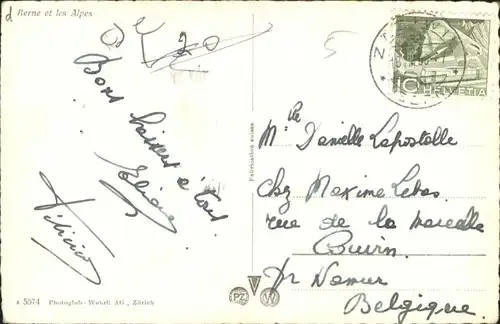 d Berne et les Alpes
20
5
10 HELVETIA
Bons baisers à tout
Fabrication suisse
Mle Danielle Lapostolle
Chez Maxime Lebas
rue de la marcelle
Couvin
Pr Namur
Belgique
PZ W
z 5574 Photoglob-Wehrli AG., Zürich